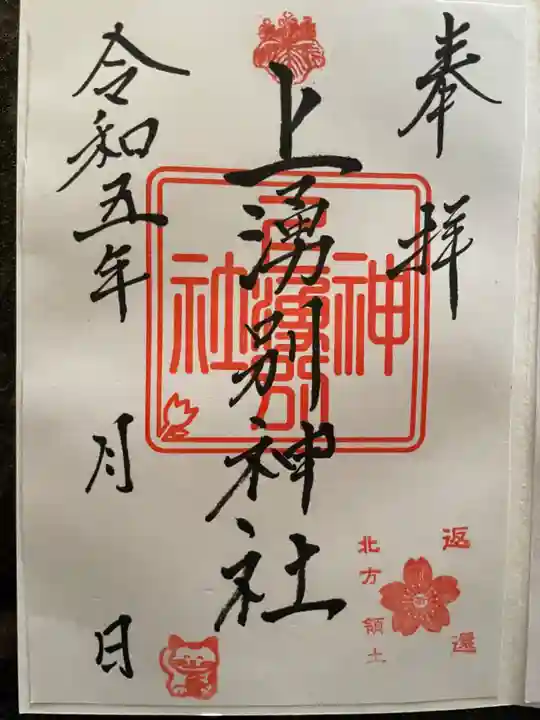 奉拝
上湧別神社
令和五年 月 日
神
上湧別
社
返還
北方領土